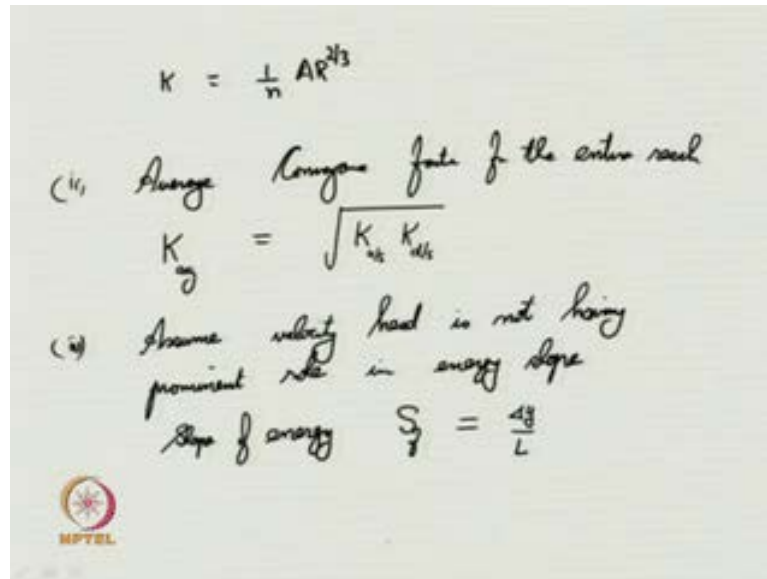 K = 1/n AR^2/3
(ii) Average Conveyance factor for the entire reach
K_avg = √(K_u/s K_d/s)
(iii) Assume velocity head is not having
prominent role in energy slope
Slope of energy S_f = Δy/L
NPTEL